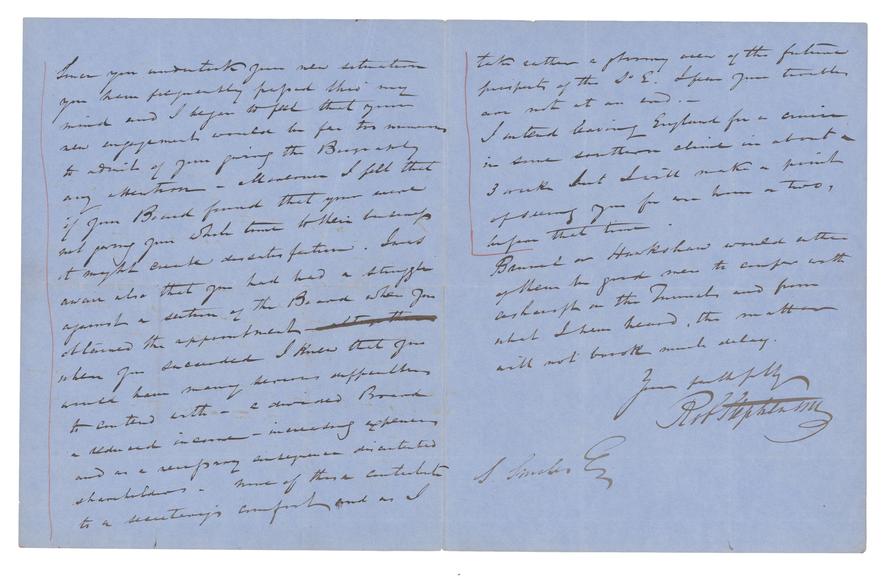 Since you undertook your new situation
you have frequently passed thro' my
mind and I began to feel that your
new engagements would be far too numerous
to admit of your giving the Biography
any attention – Moreover I felt that
if your Board found that you were
not giving your whole time to their business
it might create dissatisfaction. I was
aware also that you had had a struggle
against a section of the Board when you
obtained the appointment
when you succeeded I knew that you
would have many serious difficulties
to contend with – a divided Board
a reduced income – increasing expenses
and as a necessary consequence discontented
shareholders – none of these contribute
to a secretary's comfort and as I
take rather a gloomy view of the future
prospects of the S. E. I fear your troubles
are not at an end. –
I intend leaving England for a cruise
in some southern clime in about
3 weeks but I will make a point
of seeing you for an hour or two,
before that time.
Brunel or Hawkshaw would either
of them be good men to confer with
as to the Tunnels and from
what I have heard, the matter
will not brook much delay.
Yours faithfully
Robt Stephenson
S Smiles Esq